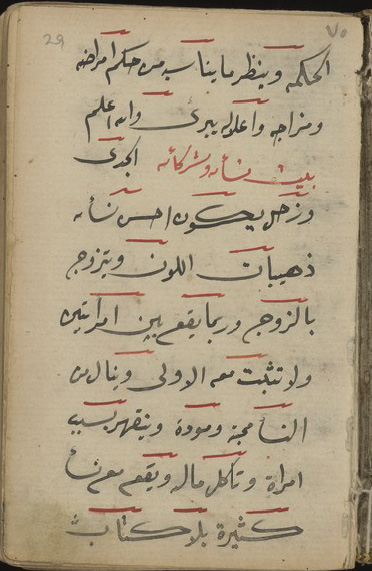 ٧٥
29
الحكمه وينظر ما يناسبه من حكم امراضه
ومزاجه واعلاله يبرئ والله اعلم
بيت نسائه وشركائه الجدى
وزحل يكون احسن نسائه
ذهبيات اللون ويتزوج
بالزوج وربما يقع بين امراتين
ولا تثبت معه الاولى وينال من
النسا محبة ومودة وينقهر بسبب
امراة وتاكل ماله ويقع مع نسا
كثيرة بلا كتاب